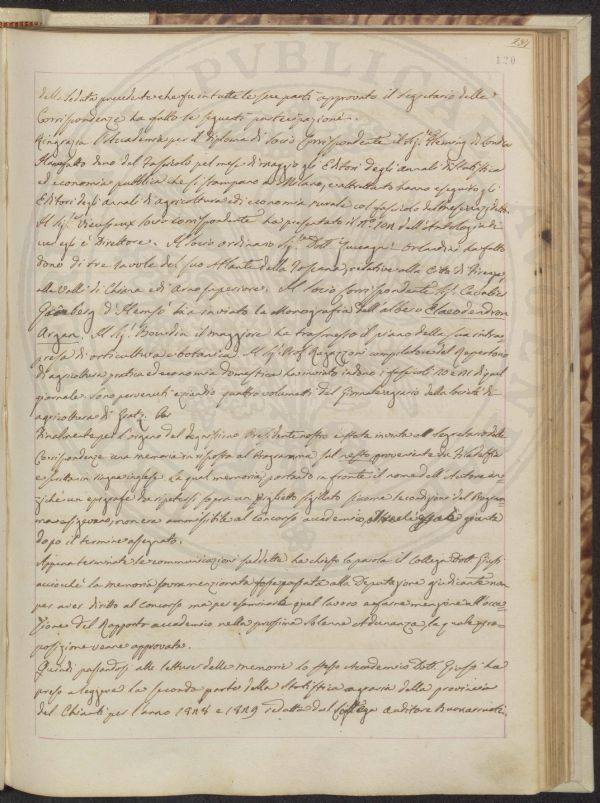 234
120
della Seduta precedente che fu in tutte le sue parti approvato il Segretario delle
Corrispondenze ha fatto le seguenti partecipazioni.
Ringrazia l'Accademia per il Diploma di Socio Corrispondente il Sig.r Fleming di Londra
Hanno fatto dono del Fascicolo pel mese di maggio gli Editori degli annali di Statistica
ed economia pubblica che si stampano a Milano, e altrettanto hanno eseguito gli
Editori degli annali d'agricoltura ed economia rurale col fascicolo del mese
Il Sig.r Vieusseux socio corrispondente ha presentato il N.o 101 dell'Antologia di
cui egli è Direttore. Il socio ordinario Sig.r Dott. Zuccagni Orlandini ha fatto
dono di tre tavole del suo Atlante della Toscana, relative alla Città di Firenze,
alle Valli di Chiana e di Arno superiore. Il socio corrispondente Sig. Cavalier
Gråberg d'Hemsö ha inviato la Monografia dell'albero Elaeodendron
Argan. Il Sig.r Bourdin il maggiore ha trasmesso il piano della sua intra=
presa di orticultura e botanica. Il Sig. Ragazzoni compilatore del Repertorio
d'agricoltura pratica ed economia domestica ha inviato in dono i fascicoli 10 e 11 di quel
giornale. sono pervenuti eziandio quattro volumetti del Giornale agrario della Società di
agricoltura di Gratz.
Finalmente per l'organo del degnissimo Presidente nostro è stata inviata al Segretario delle
Corrispondenze una memoria in risposta al Programma sul nesto proveniente da Filadelfia
e scritta in lingua inglese. La qual memoria, portando in fronte il nome dell'Autore an=
ziché un epigrafe da ripetersi sopra un biglietto sigillato siccome le condizioni del Program=
ma esigevano, non era ammissibile al concorso accademico, oltre che essere giunta
dopo il termine assegnato.
Appena terminate le comunicazioni suddette ha chiesto la parola il collega Dott. Giusti
acciocché la memoria sovra menzionata fosse passata alla Deputazione giudicante non
per aver diritto al concorso ma per esaminarla qual lavoro e farne menzione all'occa=
sione del Rapporto accademico nella prossima solenne Adunanza, la quale pro=
posizione venne approvata.
Quindi passandosi alle letture delle memorie lo stesso Accademico Dott. Giusti ha
preso a leggere la seconda parte della Statistica agraria della provincia
del Chianti per l'anno 1828 e 1829 redatta dal Collega Auditore Buonarroti,